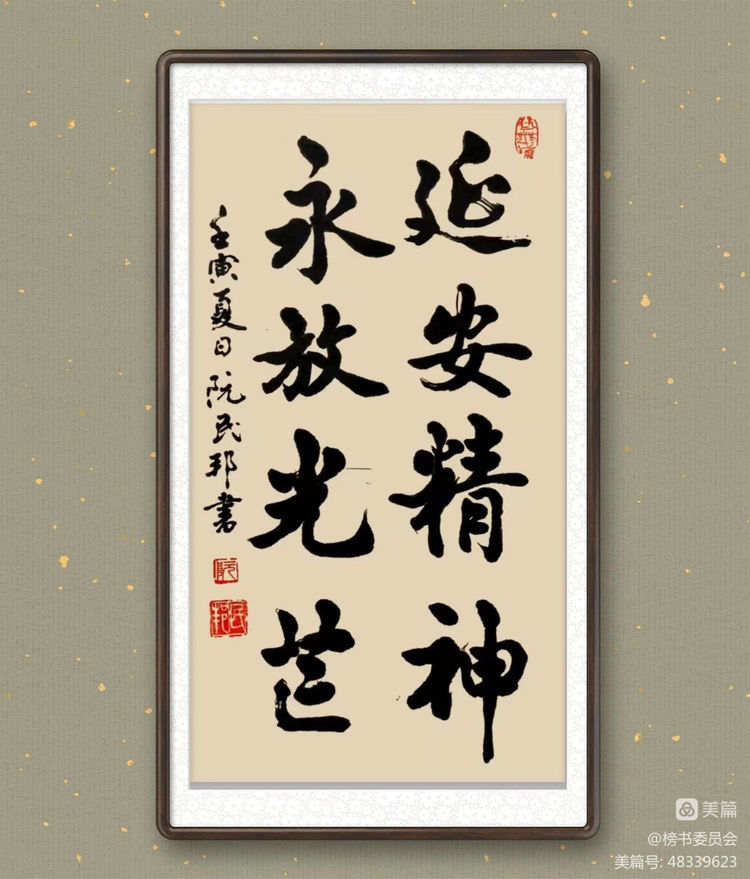 延安精神
永放光芒
壬寅夏日阮民邦書
阮
民邦
美篇
@榜书委员会
美篇号: 48339623